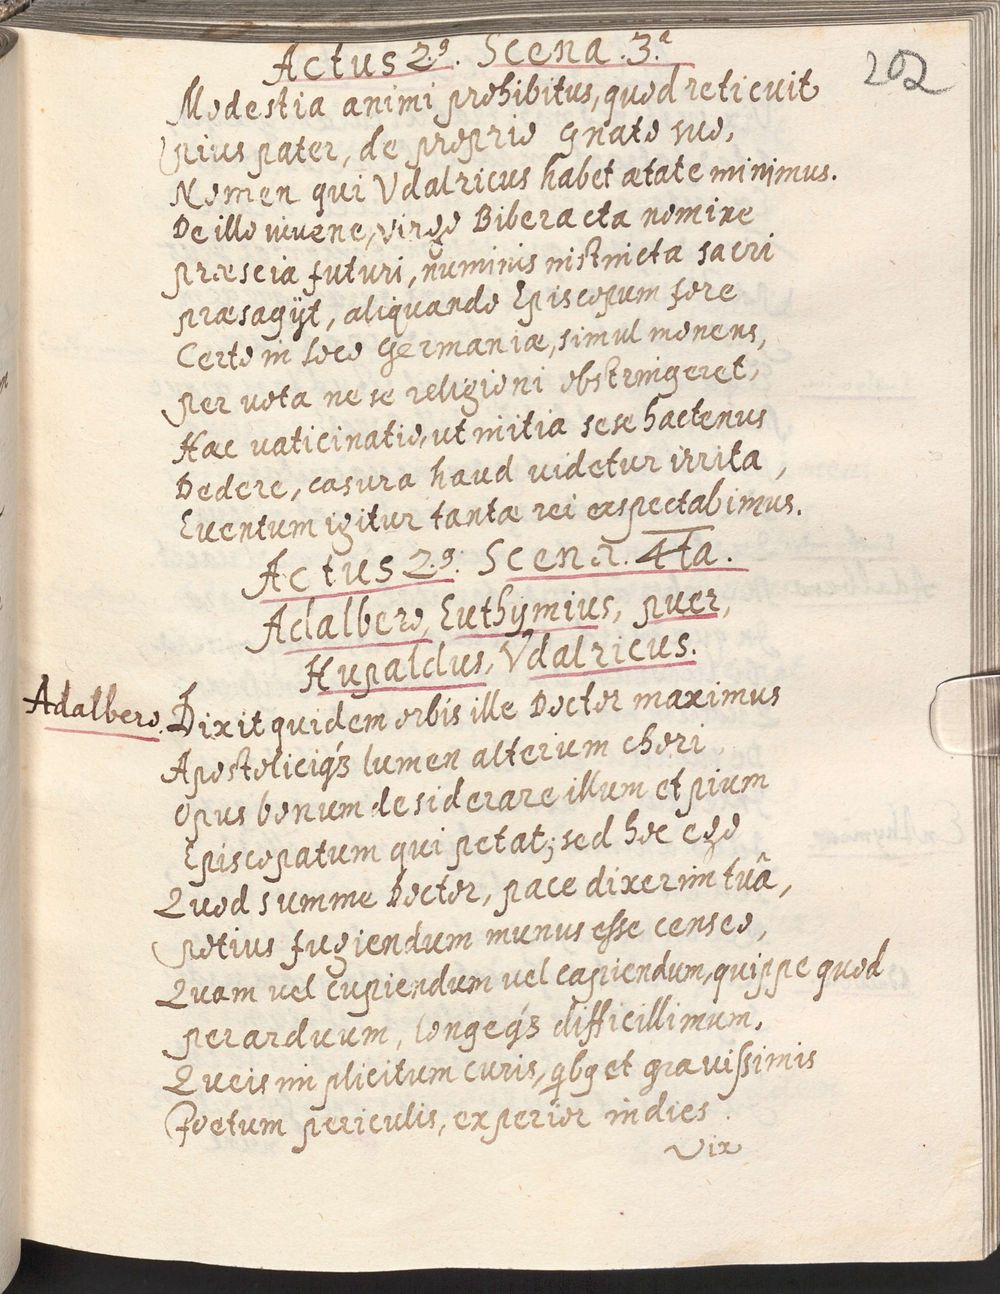 Actus 2.9 Scena .3.a
202
Modestia animi prohibitus, quod reticuit
pius pater, de proprio gnato suo,
Nomen qui Vdalricus habet ætate minimus.
De illo iuvene, virgo Biberacta nomine
præscia futuri, numinis instincta sacri
præsagÿt, aliquando Episcopum fore
Certo in loco Germaniæ, simul monens,
per vota ne se religioni obstringeret,
Hac vaticinatio, ut initia sese hactenus
Dedere, casura haud videtur irrita,
Eventum igitur tantæ rei exspectabimus.
Actus 2.9 Scena. 4ta.
Adalbero, Euthymius, puer,
Hupaldus, Vdalricus.
Adalbero. Dixit quidem orbis ille Doctor maximus
Apostoliciqʒ lumen alterum chori
Opus bonum desiderare illum et pium
Episcopatum qui petat; sed hoc ego
Quod summe Doctor, pace dixerim tuâ,
potius fugiendum munus esse censeo,
Quam vel cupiendum vel capiendum, quippe quod
perarduum, longeqʒ difficillimum.
Queis implicitum curis, qbg et gravissimis
foetum periculis, experior indies
Vix